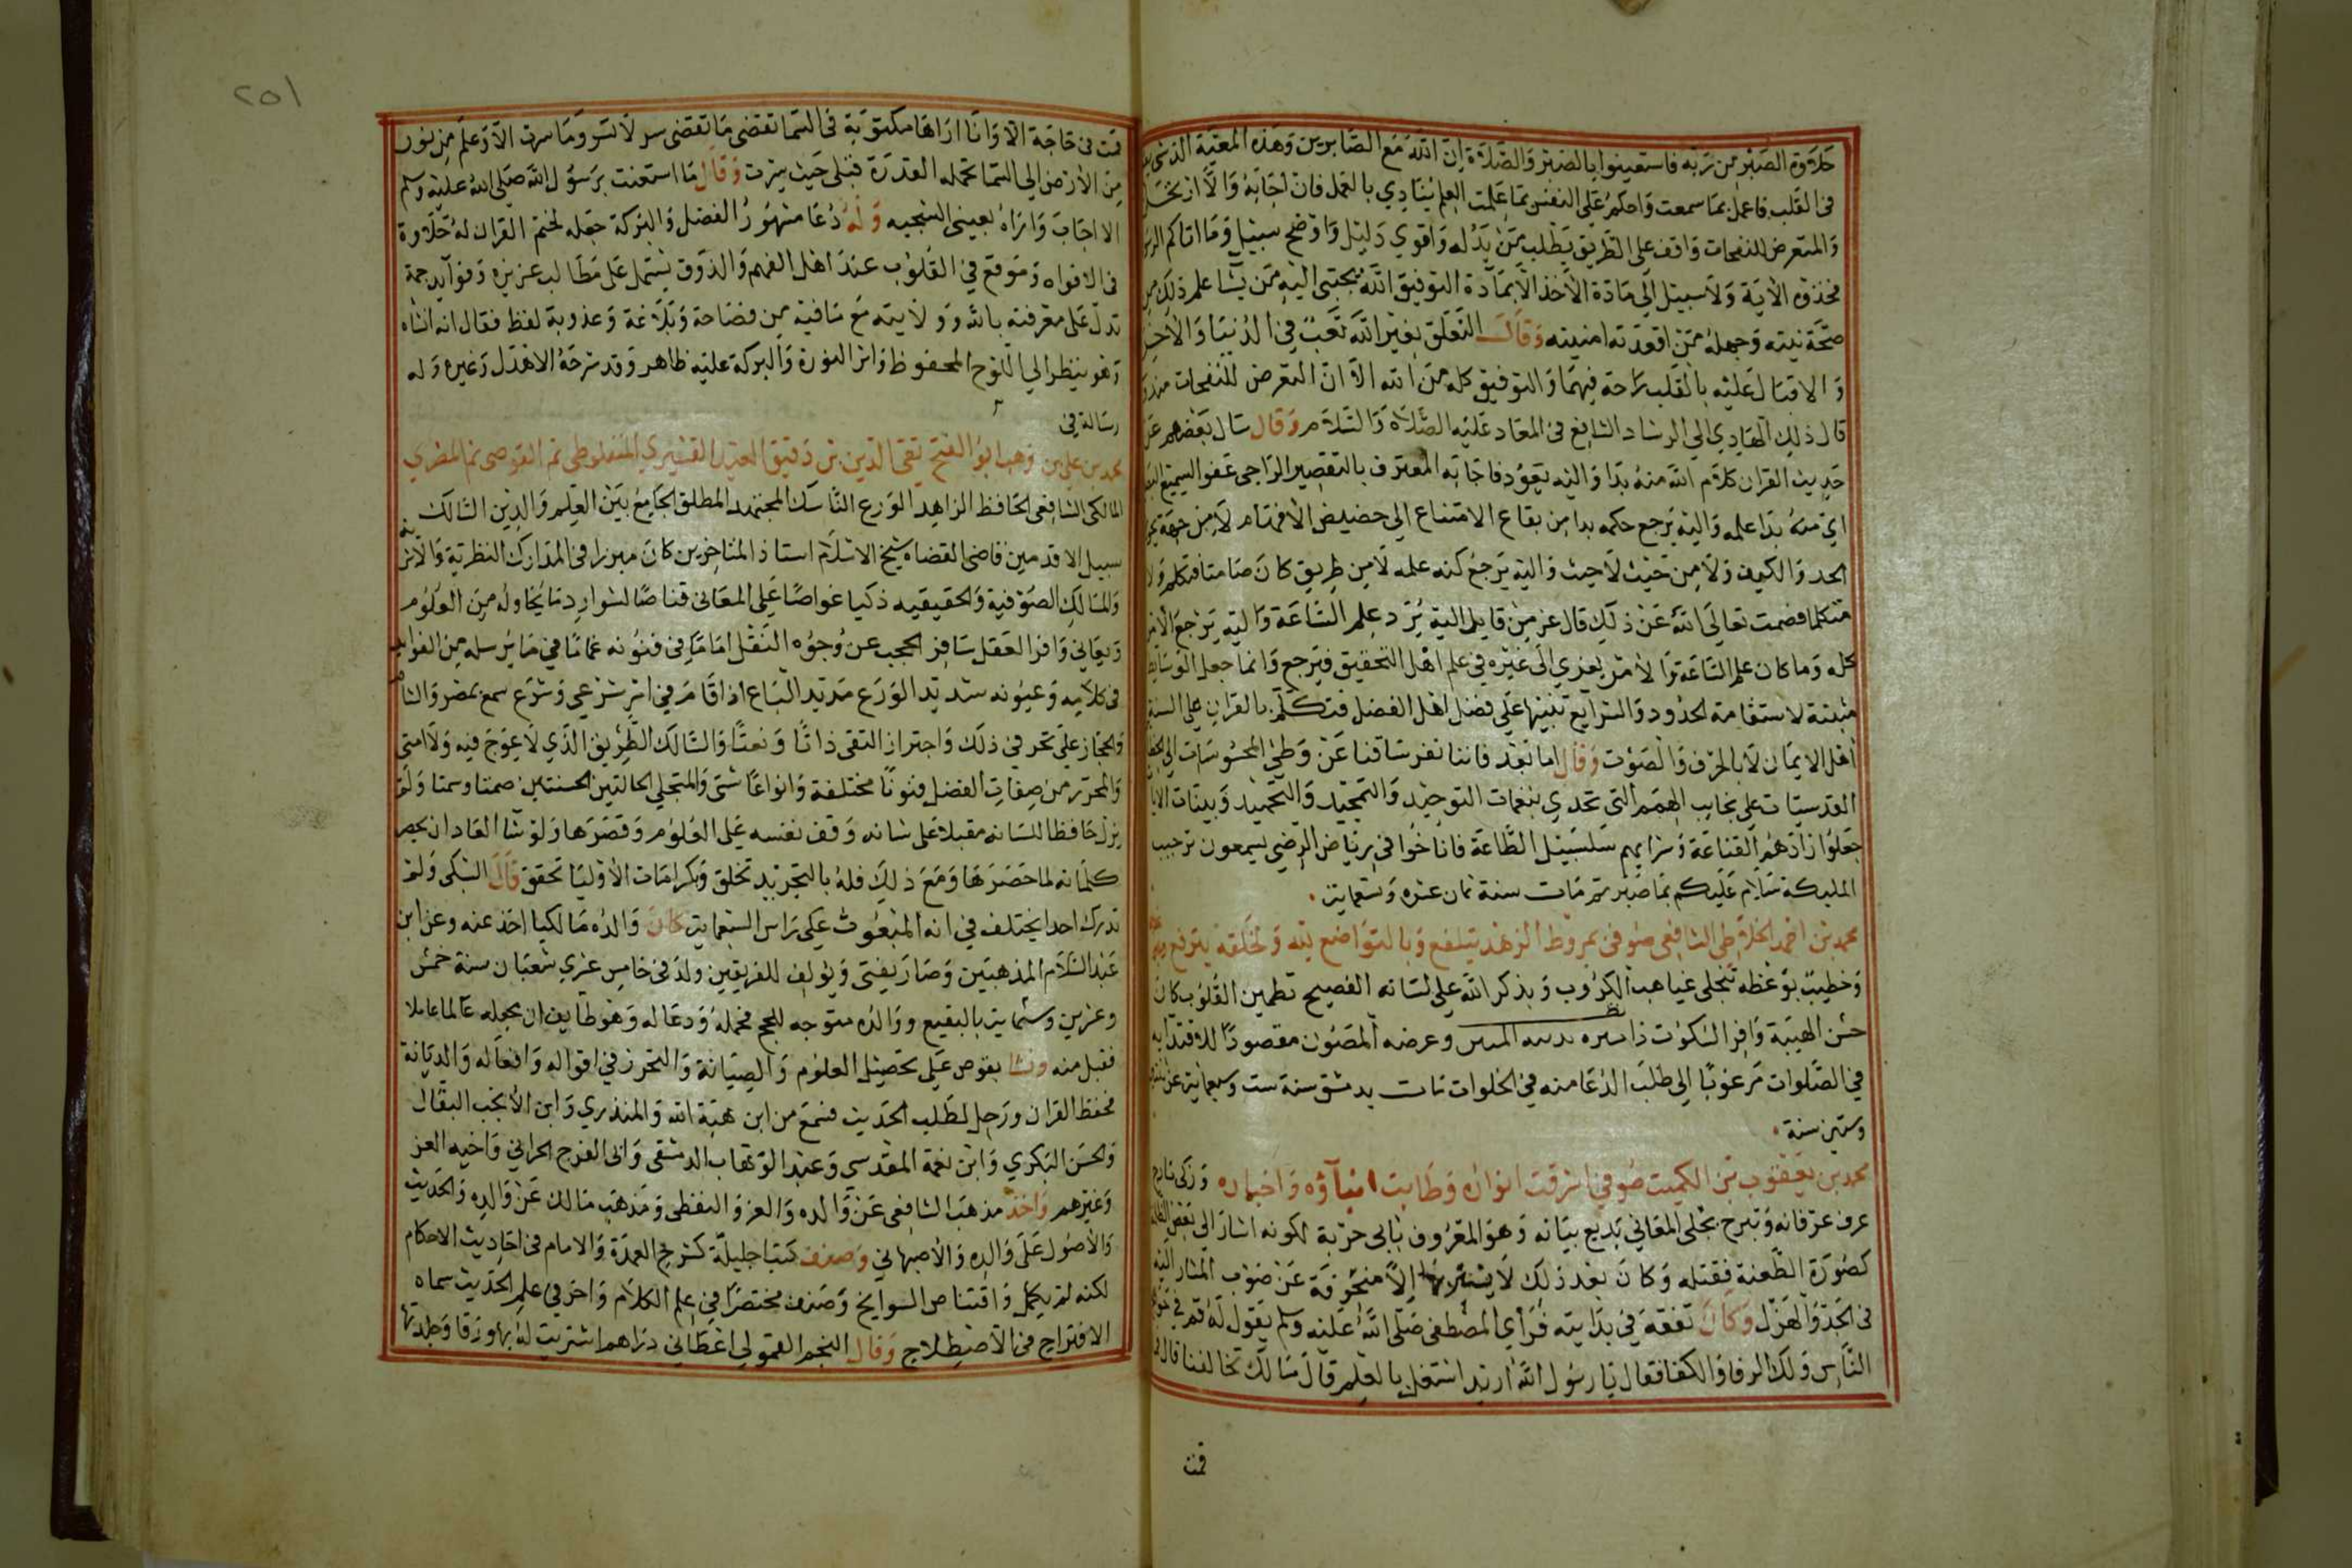 حلاوة الصبر من ربه فاستعينوا بالصبر والصلاة ان الله مع الصابرين وهذه المعية الذى
فى القلب فاعمل بما سمعت واحكم على النفس بما علمت العلم ينادي بالعمل فان اجابه والا ارتحل
والمتعرض للنفحات واقف على الطريق يطلب من يدله واقوي دليل واوضح سبيل وما اتاكم الرسول
فخذوه الاية ولا سبيل الى مادة الاخذ الا بمادة التوفيق الله يجتبى اليه من يشا علم ذلك من
صحة نيته وجهله من اقعدته امنيته وقال التعلق بغير الله تعب في الدنيا والاخرة
و الاقبال عليه بالقلب راحة فيهما والتوفيق كله من الله الا ان التعرض للنفحات مندوب
قال ذلك الهادي الى الرشاد الشافع فى المعاد عليه الصلاة والسلام وقال سال بعضهم عن
حديث القران كلام الله منه بدا واليه يعود فاجابه المعترف بالتقصير الراجى عفو السميع
اي منه بدا علمه واليه يرجع حكمه بدا من بقاع الامتناع الى حضيض الافهام لا من جهة
الحد والكيف ولا من حيث لا حيث واليه يرجع كنه علمه لا من طريق كان صامتا فتكلم ولا
متكلما فصمت تعالى الله عن ذلك قال عز من قايل اليه يرد علم الساعة واليه يرجع الامر
كله وما كان علم الساعة لامر يعزي الى غيره في علم اهل التحقيق فيرجع وانما جعل الوسايط
مثبتة لاستقامة الحدود والشرايع تنبيها على فضل اهل الفضل فتكلم بالقران على السنة
اهل الايمان لا بالحرف والصوت وقال اما بعد فاننا نفر ساقنا عن وطي المحسوسات الى
القدسيات على نجايب الهمم التى تحدي بنغمات التوحيد والتمجيد والتحميد وبينات الايات
جعلوا زادهم القناعة وشرابهم سلسبيل الطاعة فاناخوا في رياض الرضي يسمعون ترحيب
المليكة سلام عليكم بما صبرتم مات سنة ثمان عشره وتسعماية
محمد بن احمد الخلاطى الشافعى صوفى بمروط الزهد يتلفع وبالتواضع لله ولخلقه يترفع
وخطيب بوعظه تنجلى غياهب الكروب وبذكر الله على لسانه الفصيح تطمين القلوب كان
حسن الهيبة وافر السكوت ذا سيره وعرضه المصون مقصودا للاقتدا به
في الصلوات مرغوبا الى طلب الدعا منه في الخلوات مات بدمشق سنة ست وسبعماية عن
وستين سنة
محمد بن يعقوب بن الكميت صوفي اشرقت انواره وطابت انباؤه واخباره وزكى
عرف عرفانه وتبرج بحلى المعاني بديع بيانه وهو المعروف بابى حربة لكونه اشار الى بعض
كصورة الطعنة فقتله وكان بعد ذلك لا يشير بها الا منحرفة عن صوب المشار اليه
فى الجد والهزل وكان تفقه في بدايته فراي المصطفى صلى الله عليه وسلم يقول له قم في
الناس ولك الرفا والكفا فقال يا رسول الله اريد اشتغل بالعلم قال مالك تخالفنا قال
قمت
٢٥١
قمت فى حاجة الا وانا اراها مكتوبة فى السما تقضى ما تقضى سر لا تسر وما سرت الا وعلم من نور
من الارض الى السما تحمله القدرة قبلى حيث سرت وقال ما استغنت برسول الله صلى الله عليه وسلم
الا اجاب واراه بعينى الشجيه وله دعا مشهور الفضل والبركة جعله لختم القران له حلاوة
فى الافواه وموقع في القلوب عند اهل الفهم والذوق يشتمل على مطالب عزيزه وفوايد جمة
تدل على معرفته بالله وولايته مع مافيه من فصاحة وبلاغة وعذوبة لفظ فقال انه انشاه
وهو ينظر الى اللوح المحفوظ واثر النورة والبركة عليه ظاهر وقد شرحه الاهدل وغيره وله
رسالة فى
محمد بن على بن وهب ابو الفتح تقى الدين بن دقيق العيد القشيري المنفلوطى ثم القوصى ثم المصري
المالكى الشافعى الحافظ الزاهد الورع الناسك المجتهد المطلق الجامع بين العلم والدين السالك
سبيل الاقدمين قاضى القضاه شيخ الاسلام استاذ المتاخرين كان مبرزا فى المدارك النظرية والاثرية
والمسالك الصوفية والحقيقيه ذكيا غواصا على المعانى قناصا لشوارد ما يحاوله من العلوم
ويعانى وافر العقل سافر الحجب عن وجوه النقل اماما فى فنونه غماما في ما يرسله من الفوايد
فى كلامه وعيونه شديد الورع مديد الباع اذا قام في امر شرعي وشرع سمع بمصر والشام
والحجاز على تحر في ذلك واحتراز التقى ذاتا ونعتا والسالك الطريق الذي لا عوج فيه ولا امتى
والمحرز من صفات الفضل فنونا مختلفة وانواعا شتى والمتجلى الحالتين الحسنتين صمتا وسمتا ولم
يزل حافظا للسانه مقبلا على شانه وقف نفسه على العلوم وقصرها ولو شا العاد ان يحصر
كلماته لما حصرها ومع ذلك فله بالتجريد تخلق وبكرامات الاوليا تحقق قال السبكى ولم
ندرك احدا يختلف في انه المبعوث على راس السبعماية كان والده مالكيا اخذ عنه وعن ابن
عبد السلام المذهبين وصار يفتى ويولف للفريقين ولد فى خامس عشري شعبان سنة خمس
وعشرين وستماية بالبقيع ووالده متوجه للحج فحمله ودعا له وهو طايف ان يجعله عالما عاملا
فقبل منه ونشا بقوص على تحصيل العلوم والصيانة والتحرز في اقواله وافعاله والديانة
فحفظ القران ورحل لطلب الحديث فسمع من ابن هبة الله والمنذري وابن الانجب البقال
والحسن البكري وابن نعمة المقدسي وعبد الوهاب الدمشقى وابى الفرج الحراني واخيه العز
وغيرهم واخذ مذهب الشافعى عن والده والعز والقفطى ومذهب مالك عن والده والحديث
والاصول على والده والاصبهاني وصنف كتبا جليلة كشرح العمدة والامام فى احاديث الاحكام
لكنه لم يكمل واقتناص السوانح وصنف مختصرا فى علم الكلام واخر في علم الحديث سماه
الاقتراح فى الاصطلاح وقال النجم القمولي اعطانى دراهم اشتريت له بها ورقا وجلدتها